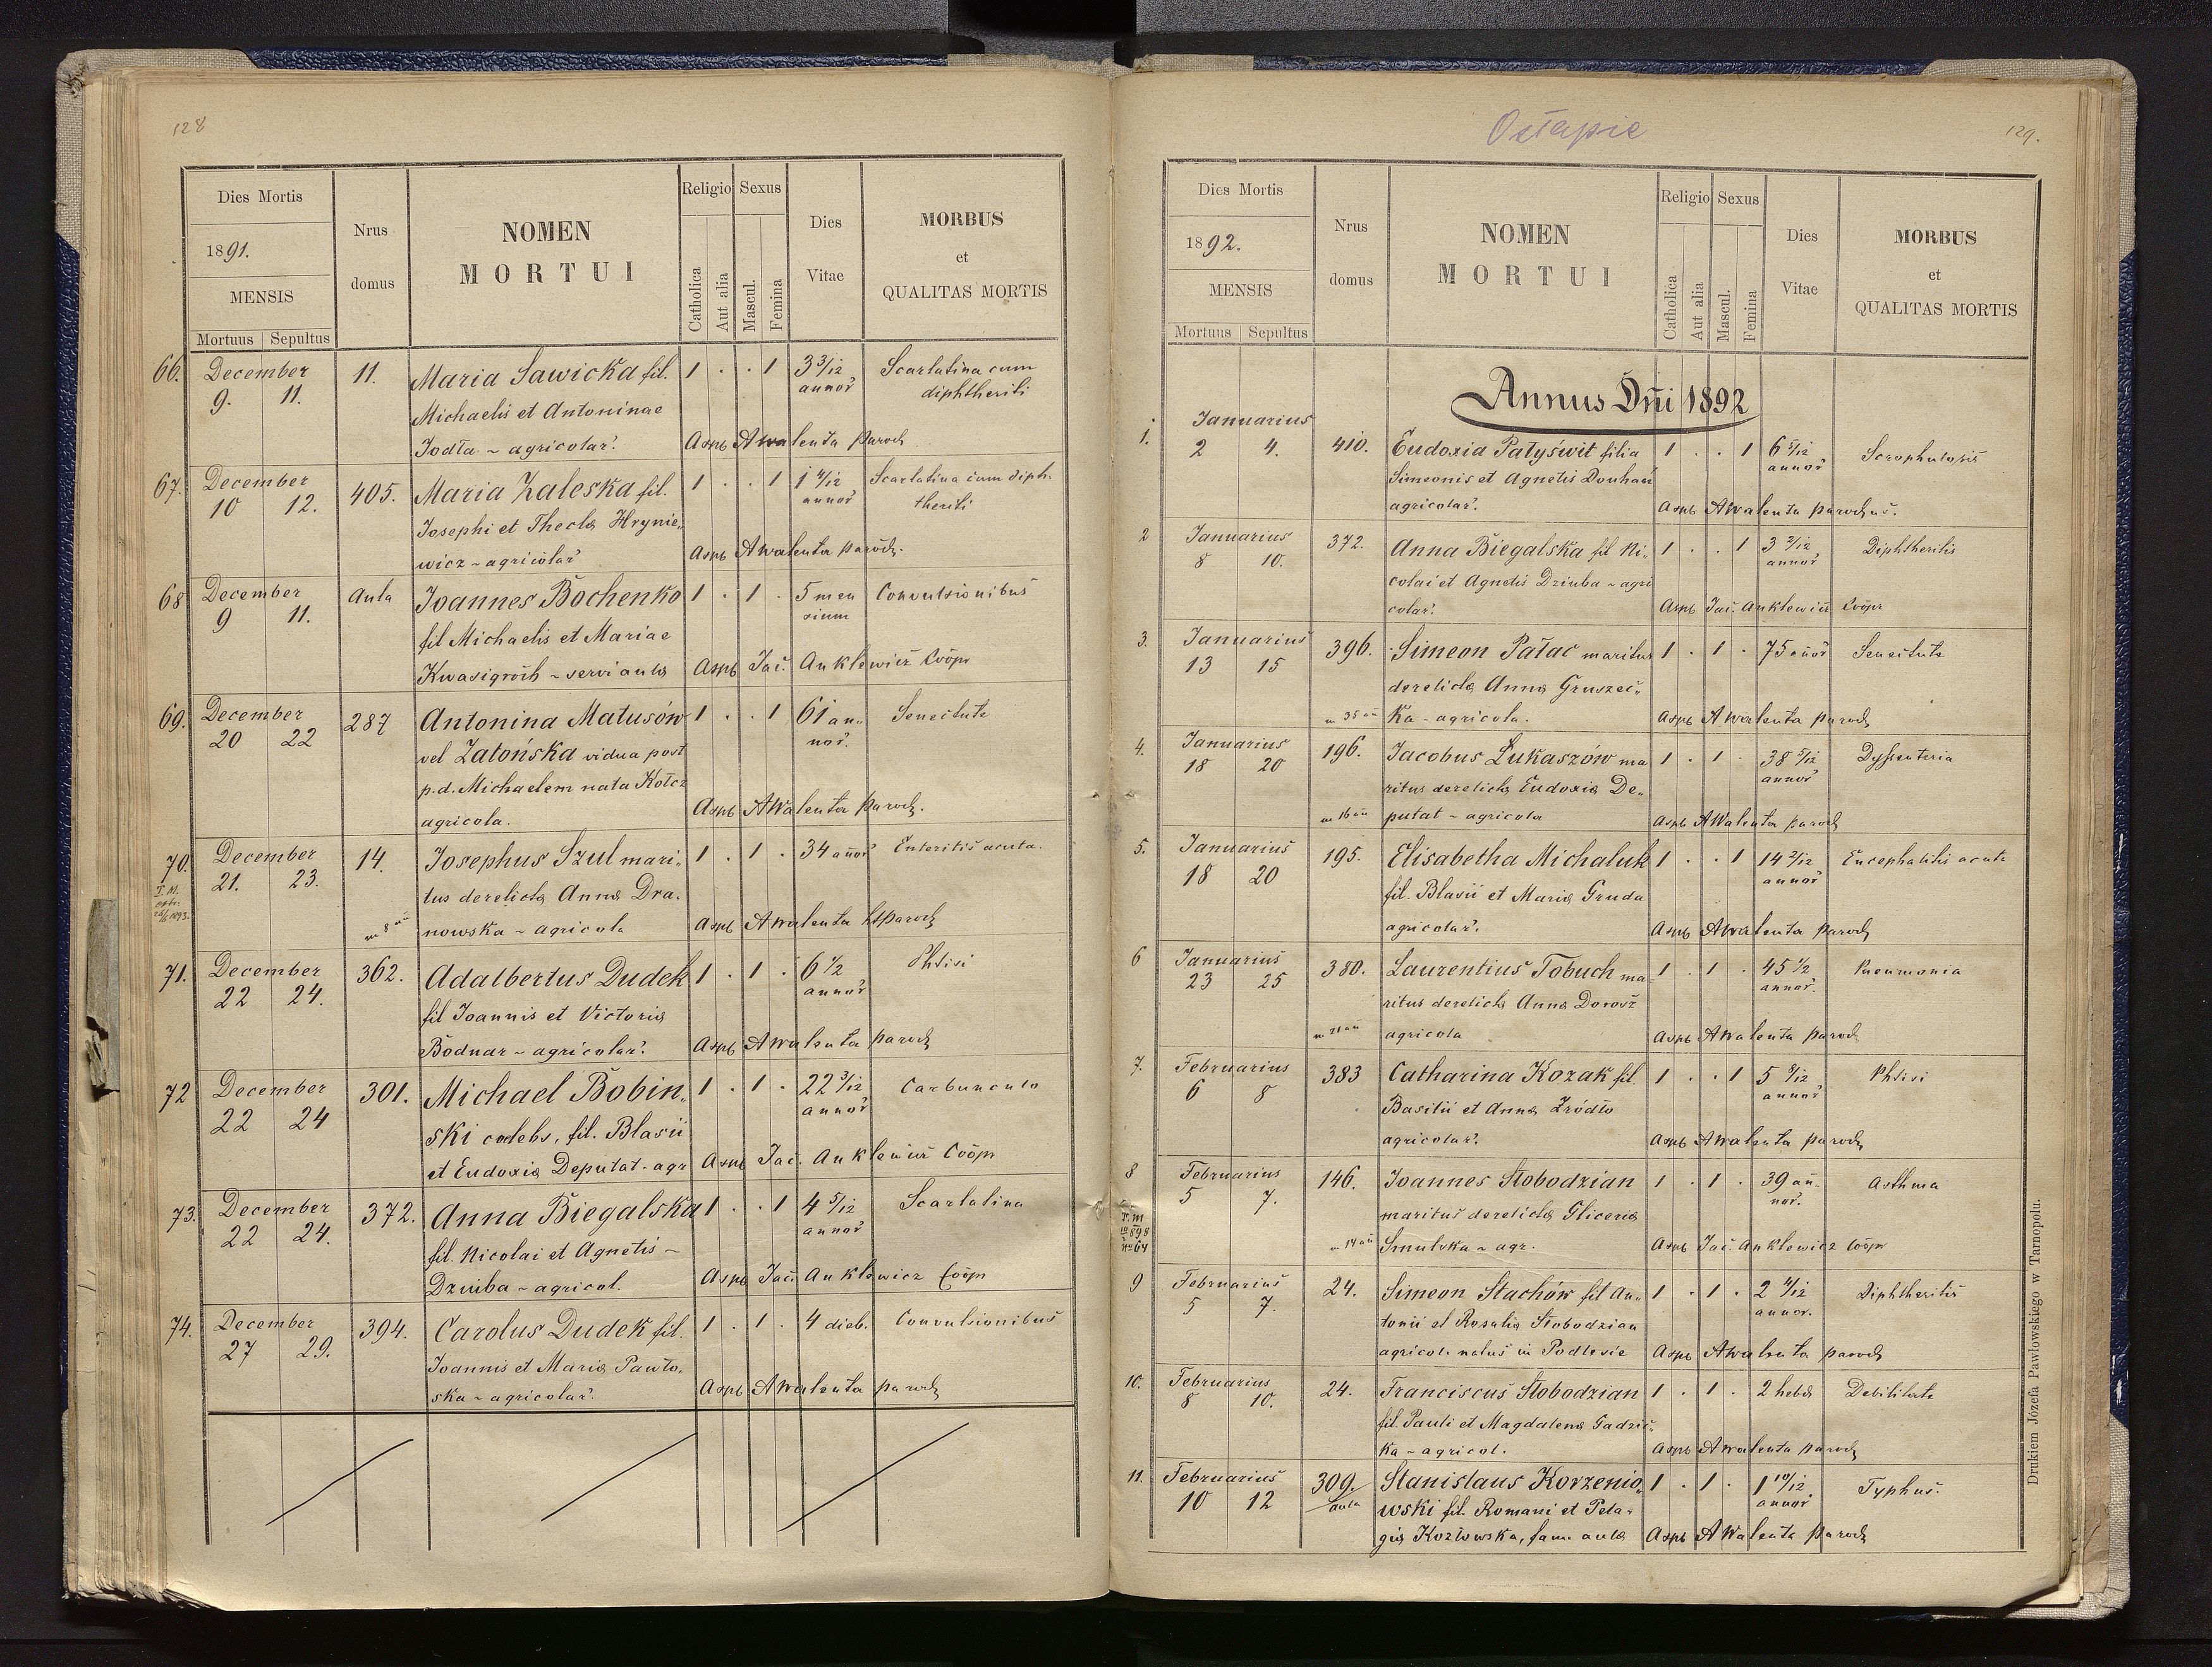 128
Dies Mortis
1891.
MENSIS
Mortuus Sepultus
Nrus domus
NOMEN
MORTUI
Religio Sexus
Catholica Aut alia Mascul. Femina
Dies Vitae
MORBUS
et
QUALITAS MORTIS
66. December 11. Maria Sawicka fil. 1 . . 1 3 3/12 Scarlatina cum
9. 11. Michaelis et Antoninae annor̃ diphtheriti
Jodła ~ agricolar̃. Aspb AWalenta paroch
67. December 405. Maria Zaleska fil. 1 . . 1 1 4/12 Scarlatina cum diph-
10 12. Josephi et Theclæ Hrynie- annor̃ theriti
wicz ~ agricolar̃ Aspb AWalenta paroch.
68 December Aula Joannes Bochenko 1 . 1 . 5 men Convulsionibus
9 11. fil Michaelis et Mariae sium
Kwasigroch ~ servi aulæ Aspb Jac. Anklewicz Coop
69. December 287 Antonina Matusów 1 . . 1 61 an- Senectute
20 22 vel Zatońska vidua post nor̃.
p.d. Michaelem nata Kołcz
agricola. Aspb AWalenta paroch.
70. December 14. Josephus Szul mari- 1 . 1 . 34 añor̃ Enteritis acuta.
21. 23. tus derelictæ Annæ Dra-
T. M.
m 8 añ nowska ~ agricola Aspb AWalenta paroch
71. December 362. Adalbertus Dudek 1 . 1 . 6 1/2 Phtisi
22 24. fil Joannis et Victoriæ annor̃
Bodnar ~ agricolar̃. Aspb AWalenta paroch
72 December 301. Michael Bobin- 1 . 1 . 22 3/12 Carbunculo
22 24 ski cœlebs, fil. Blasii annor̃
et Eudoxiæ Deputat - agr Aspb Jac. Anklewicz Coop
73. December 372. Anna Biegalska 1 . . 1 4 5/12 Scarlatina
22 24. fil. Nicolai et Agnetis ~ annor̃
Dziuba ~ agricol. Aspb Jac. Anklewicz Coop
74. December 394. Carolus Dudek fil. 1 . 1 . 4 dieb. Convulsionibus
27 29. Joannis et Mariæ Pawło-
ska ~ agricolar̃. Aspb AWalenta paroch
Ostapie
129.
Dies Mortis
1892.
MENSIS
Mortuus Sepultus
Nrus domus
NOMEN
MORTUI
Religio Sexus
Catholica Aut alia Mascul. Femina
Dies Vitae
MORBUS
et
QUALITAS MORTIS
Annus Dñi 1892
1. Januarius 410. Eudoxia Patyświt filia 1 . . 1 6 5/12 Scrophulosis
2 4. Simeonis et Agnetis Douhań annor̃
agricolar̃. Aspb AWalenta parochus.
2 Januarius 372. Anna Biegalska fil Ni- 1 . . 1 3 2/12 Diphtheritis
8 10. colai et Agnetis Dziuba ~ agri annor̃
colar̃. Aspb Jac. Anklewicz Coop
3. Januarius 396. Simeon Pałac maritus 1 . 1 . 75 añor̃ Senectute
13 15 derelictæ Annæ Gruszec-
m 35 añ ka - agricola. Aspb AWalenta paroch
4. Januarius 196. Jacobus Łukaszów ma 1 . 1 . 38 5/12 Dyssenteria
18 20 ritus derelictæ Eudoxiæ De- annor̃
m 16 añ putat - agricola Aspb AWalenta paroch
5. Januarius 195. Elisabetha Michaluk 1 . . 1 14 2/12 Encephalitis acuta
18 20 fil. Blasii et Mariæ Gruda annor̃
agricolar̃. Aspb AWalenta paroch
6 Januarius 380. Laurentius Tobuch ma- 1 . 1 . 45 1/2 Pneumonia
23 25 ritus derelictæ Annæ Dorosz annor̃.
m 21 añ agricola Aspb AWalenta paroch
7. Februarius 383 Catharina Kozak fil. 1 . . 1 5 8/12 Phtisi
6 8 Basilii et Annæ Źródło annor̃
agricolar̃. Aspb AWalenta paroch
8 Februarius 146. Joannes Słobodzian 1 . 1 . 39 añ- Asthma
5 7. maritus derelictæ Gliceriæ nor̃.
T. M 1898 No 64 m 14 añ Smulska ~ agr. Aspb Jac. Anklewicz Coop
9 Februarius 24. Simeon Stachów fil An- 1 . 1 . 2 4/12 Diphtheritis
5 7. tonii et Rosaliæ Słobodzian annor.
agricol. natus in Podlesie Aspb AWalenta paroch
10. Februarius 24. Franciscus Słobodzian 1 . 1 . 2 hebd Debilitate
8 10. fil. Pauli et Magdalenæ Gadzic-
ka ~ agricol. Aspb AWalenta paroch
11. Februarius 309. Stanislaus Korzenio- 1 . 1 . 1 10/12 Typhus.
10 12 aula wski fil. Romani et Pela- annor̃
giæ Kozłowska, fam. aulæ Aspb AWalenta paroch
Drukiem Józefa Pawłowskiego w Tarnopolu.